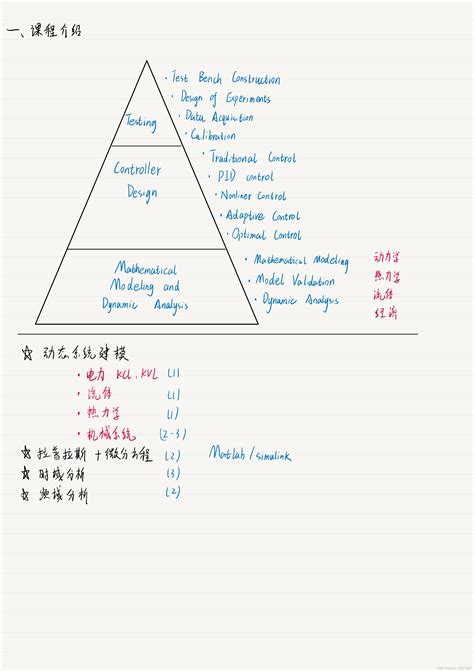 一、课程介绍
· Test Bench Construction
· Design of Experiments
· Data Acquicition
· Calibration
Testing
· Traditional Control
· PID control
· Nonliner Control
· Adaptive Control
· Optimal Control
Controller
Design
· Mathematical Modeling 动力学
· Model Validation 热力学
· Dynamic Analysis 流体
经济
Mathematical
Modeling and
Dynamic Analysis
☆ 动态系统建模
· 电力 KCL、KVL (1)
· 流体 (1)
· 热力学 (1)
· 机械系统 (2-3)
☆ 拉普拉斯 + 微分方程 (2) Matlab/simulink
☆ 时域分析 (3)
☆ 频域分析 (2)